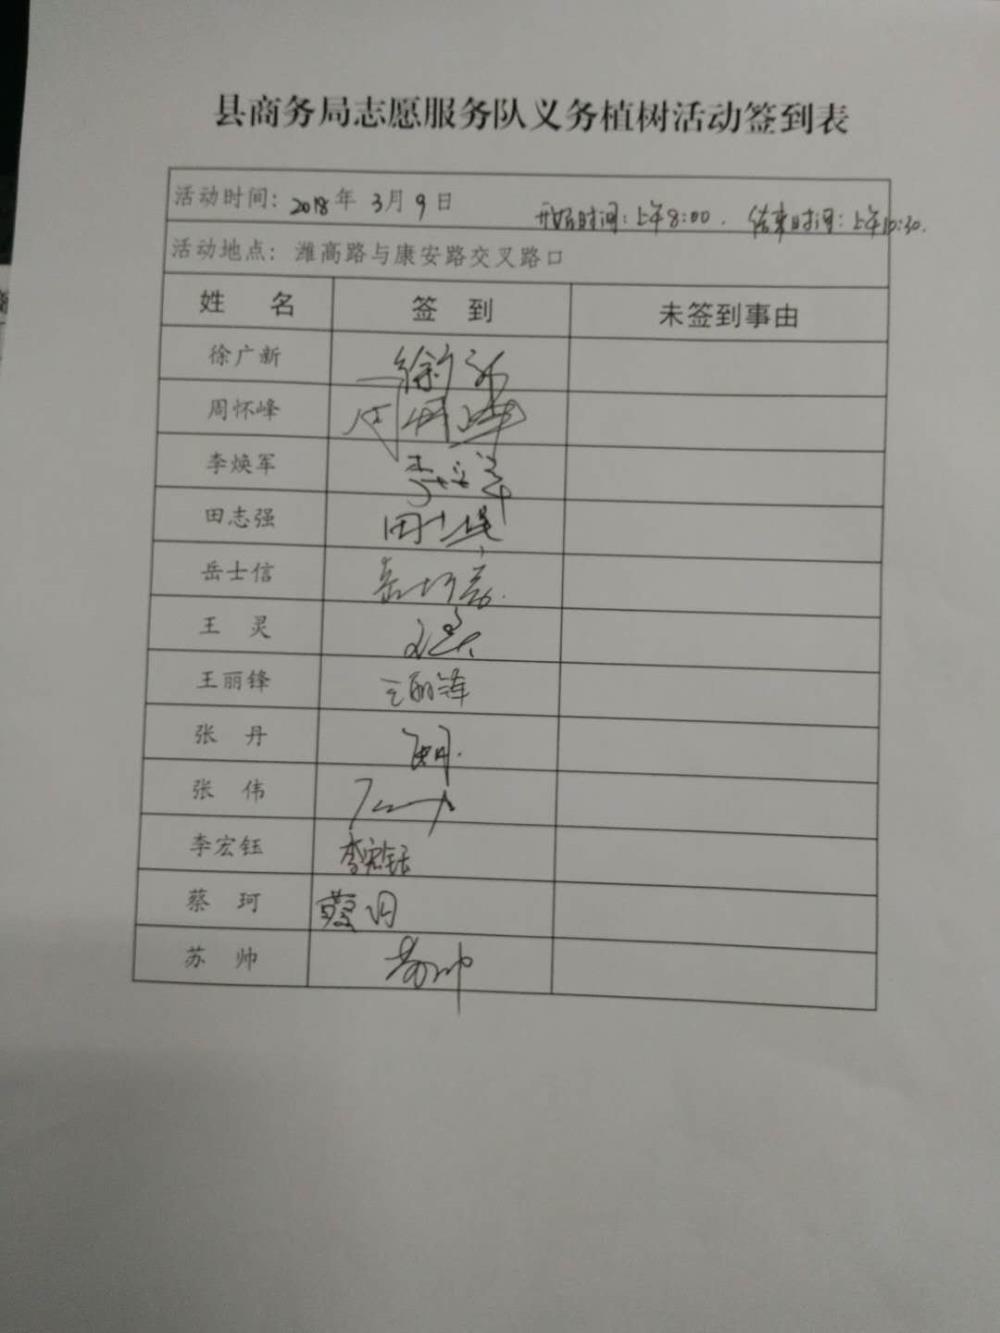 县商务局志愿服务队义务植树活动签到表
活动时间：2018年 3月 9日 开始时间：上午8:00. 结束时间：上午10:30.
活动地点：潍高路与康安路交叉路口
姓 名 签 到 未签到事由
徐广新 徐广新
周怀峰 周怀峰
李焕军
田志强 田志强
岳士信 岳士信
王 灵 王灵
王丽锋 王丽锋
张 丹 张丹
张 伟
李宏钰 李宏钰
蔡 珂 蔡珂
苏 帅 苏帅